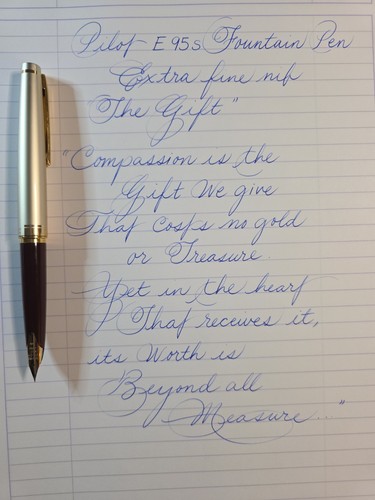 Pilot E95s Fountain Pen
Extra fine nib
"The Gift"
"Compassion is the
Gift We give
That Costs no gold
or Treasure.
Yet in the heart
That receives it,
its Worth is
Beyond all
Measure..."